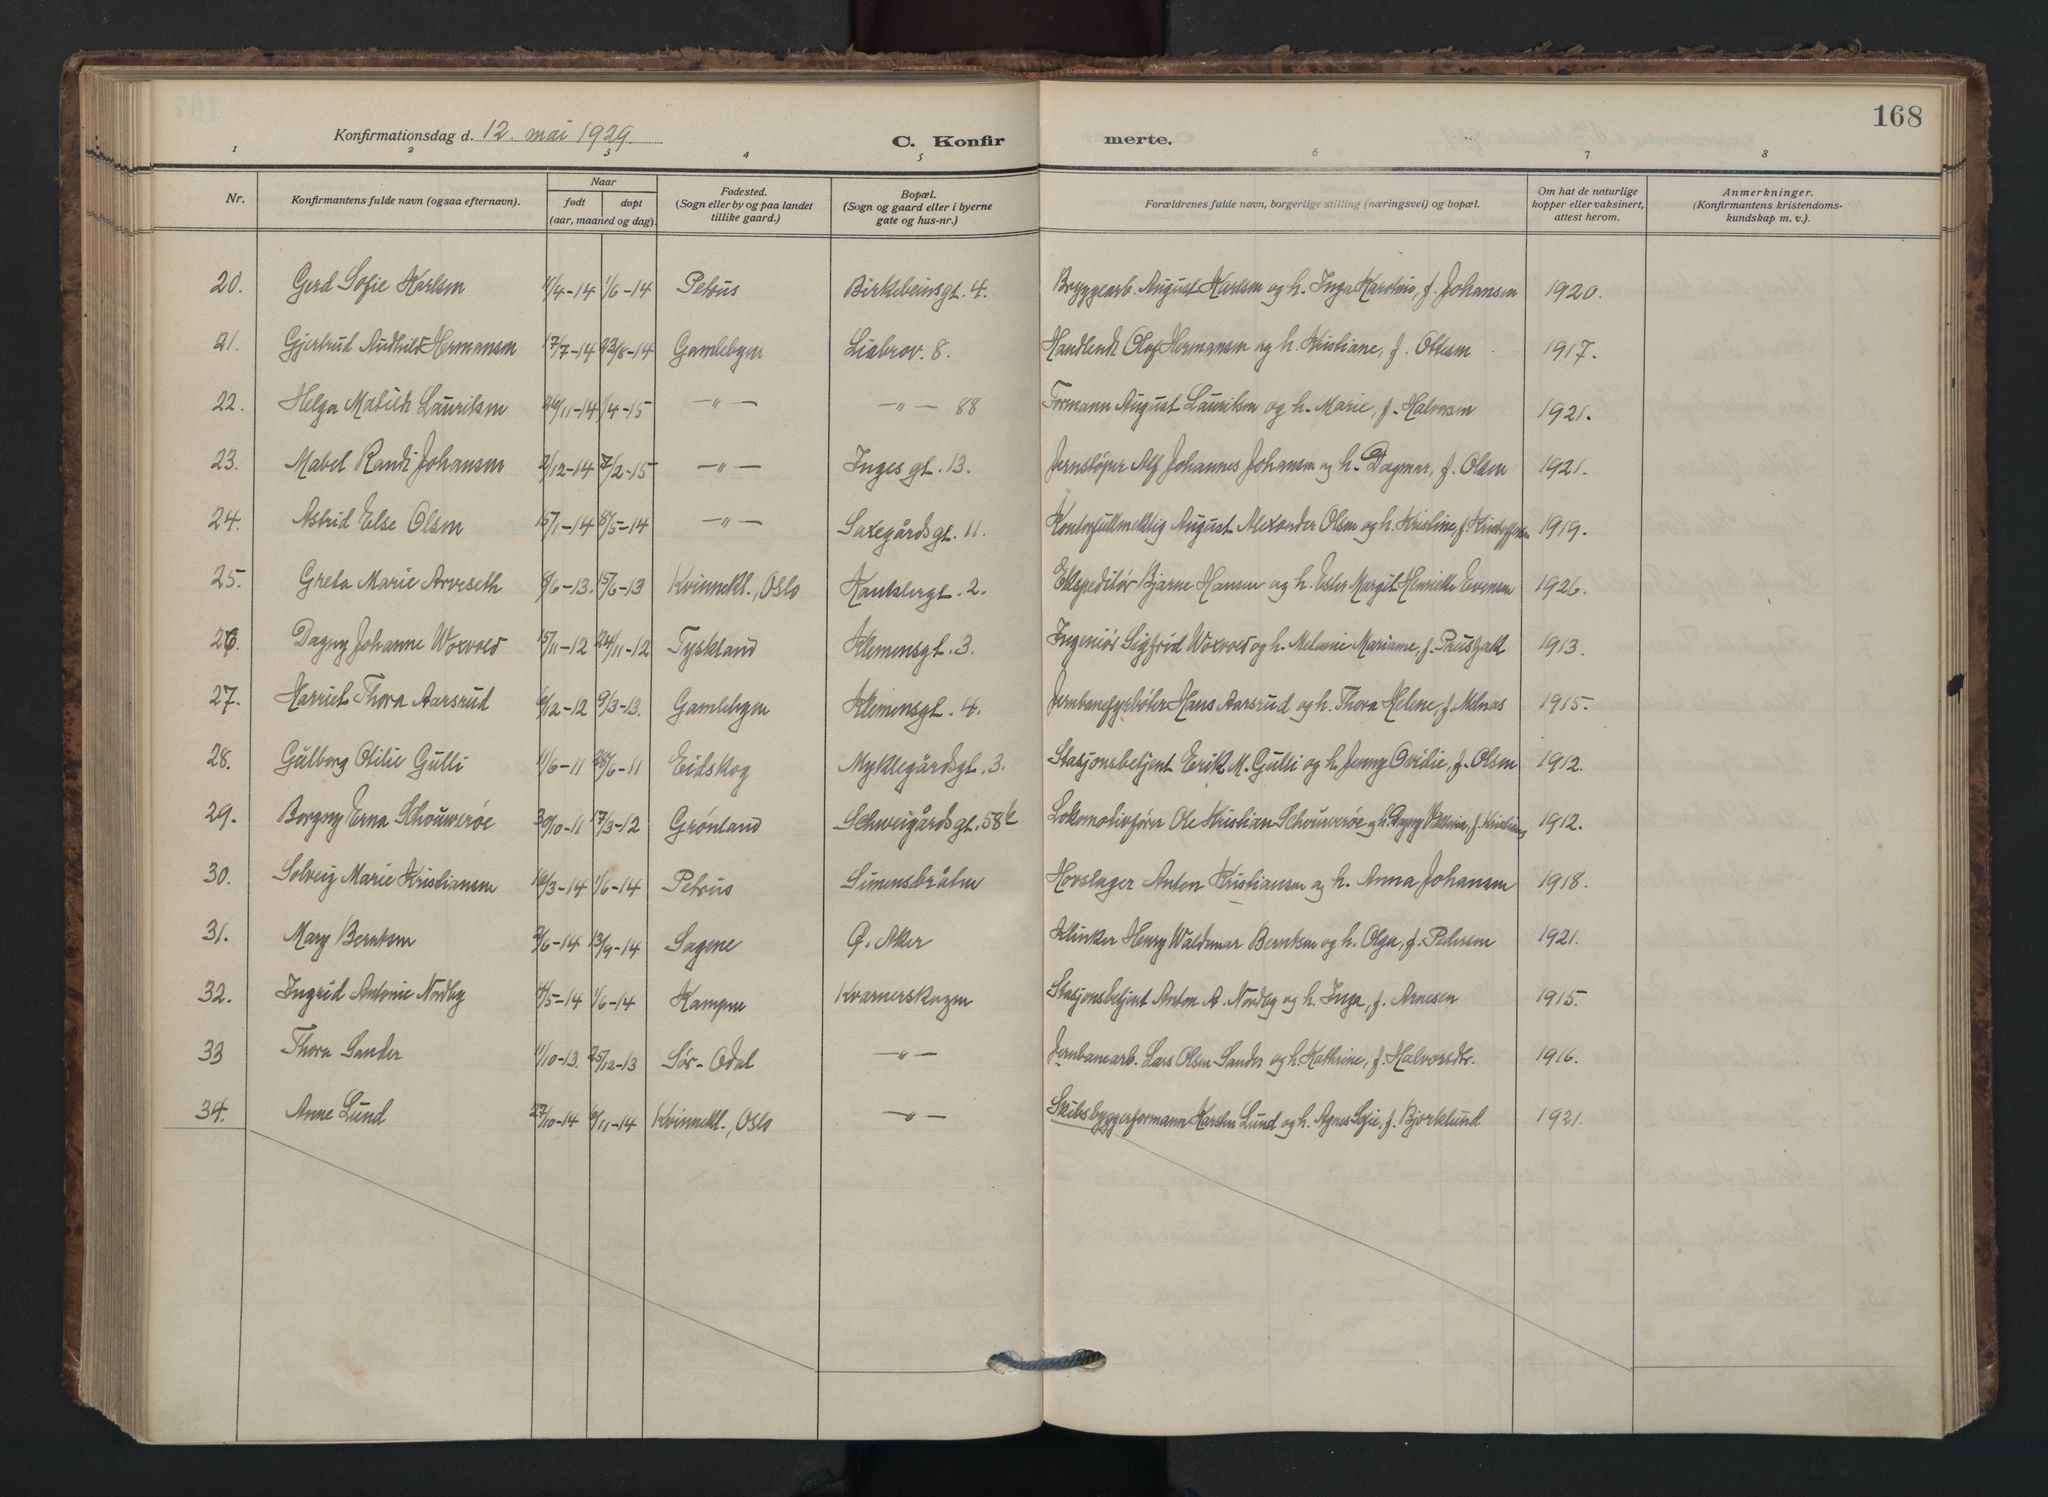 168
Konfirmationsdag d. 12. mai 1929.
C. Konfir merte.
1 2 3 4 5 6 7 8
Nr. Konfirmantens fulde navn (ogsaa efternavn). Naar født døpt (aar, maaned og dag). Fødested. (Sogn eller by og paa landet tillike gaard.) Bopæl. (Sogn og gaard eller i byerne gate og hus-nr.) Forældrenes fulde navn, borgerlige stilling (næringsvei) og bopæl. Om hat de naturlige kopper eller vaksinert, attest herom. Anmerkninger. (Konfirmantens kristendoms-kundskap m. v.).
20. Gerd Sofie Karlsen 1/6-14 Petrus Birkebeinsgt. 4. Bryggearb. August Karlsen og h. Inga Karoline, f. Johansen 1920.
21. Gjertrud Audhild Hermansen 17/7-14 23/8-14 Gamlebyen Liabrov. 8. Handlende Olaf Hermansen og h. Kristiane, f. Ottesen 1917.
22. Helga Matilde Lauritsen 26/11-14 -15 —"— —"— 88 Formann August Lauritsen og h. Marie, f. Halvorsen 1921.
23. Mabel Randi Johansen 2/12-14 7/2-15 —"— Inges gt. 13. Alf Johannes Johansen og h. Dagmar, f. Olsen 1921.
24. Astrid Else Olsen 15/1-14 -14 —"— Saxegårdsgt. 11. Kontorfullmektig August Alexander Olsen og h. Kristine, f. Kristoffersen 1919.
25. Greta Marie Arveseth 6/6-13. 15/6-13 Kvinnekl., Oslo Kanslergt. 2. Ekspeditør Bjarne Hansen og h. Ester Margit Henriette Evensen 1926.
26. Dagny Johanne Woxvold 15/11-12 24/11-12 Tyskland Klemensgt. 3. Ingeniør Sigfrid Woxvold og h. Melanie Mariane, f. 1913.
27. Harriet Thora Aarsrud 6/12-12 9/3-13. Gamlebyen Klemensgt. 4. Jernbanefyrbøter Hans Aarsrud og h. Thora Helene, f. Melnæs 1915.
28. Gulborg Otilie Gulli 11/6-11 28/6-11 Eidskog Myklegårdsgt. 3. Stasjonsbetjent Erik M. Gulli og h. Jenny Ovidie, f. Olsen 1912.
29. Borgny Erna Schouwerøe 30/10-11 17/3-12 Grønland Schweigårdsgt. 58 b Lokomotivfører Ole Kristian Schouwerøe og h. Dagny 1912.
30. Solveig Marie Kristiansen 16/3-14 1/6-14 Petrus Simensbråten Hovslager Anton Kristiansen og h. Anna Johansen 1918.
31. Mary Berntsen 2/6-14 13/9-14 Sagene Ø. Aker Klinker Henry Waldemar Berntsen og h. Olga, f. Pedersen 1921.
32. Ingrid Antonie Nordby 4/5-14 1/6-14 Kampen Kvarnerskogen Stasjonsbetjent Anton A. Nordby og h. Inga, f. Arnesen 1915.
33 Thora Sander 11/10-13. 25/12-13 Sør-Odal —"— Jernbanearb. Lars Olsen Sander og h. Kathrine, f. Halvorsdtr. 1916.
34. Anne Lund 27/10-14 6/11-14 Kvinnekl., Oslo —"— Skibsbyggerformann Karsten Lund og h. Agnes Sofie, f. Bjorklund 1921.